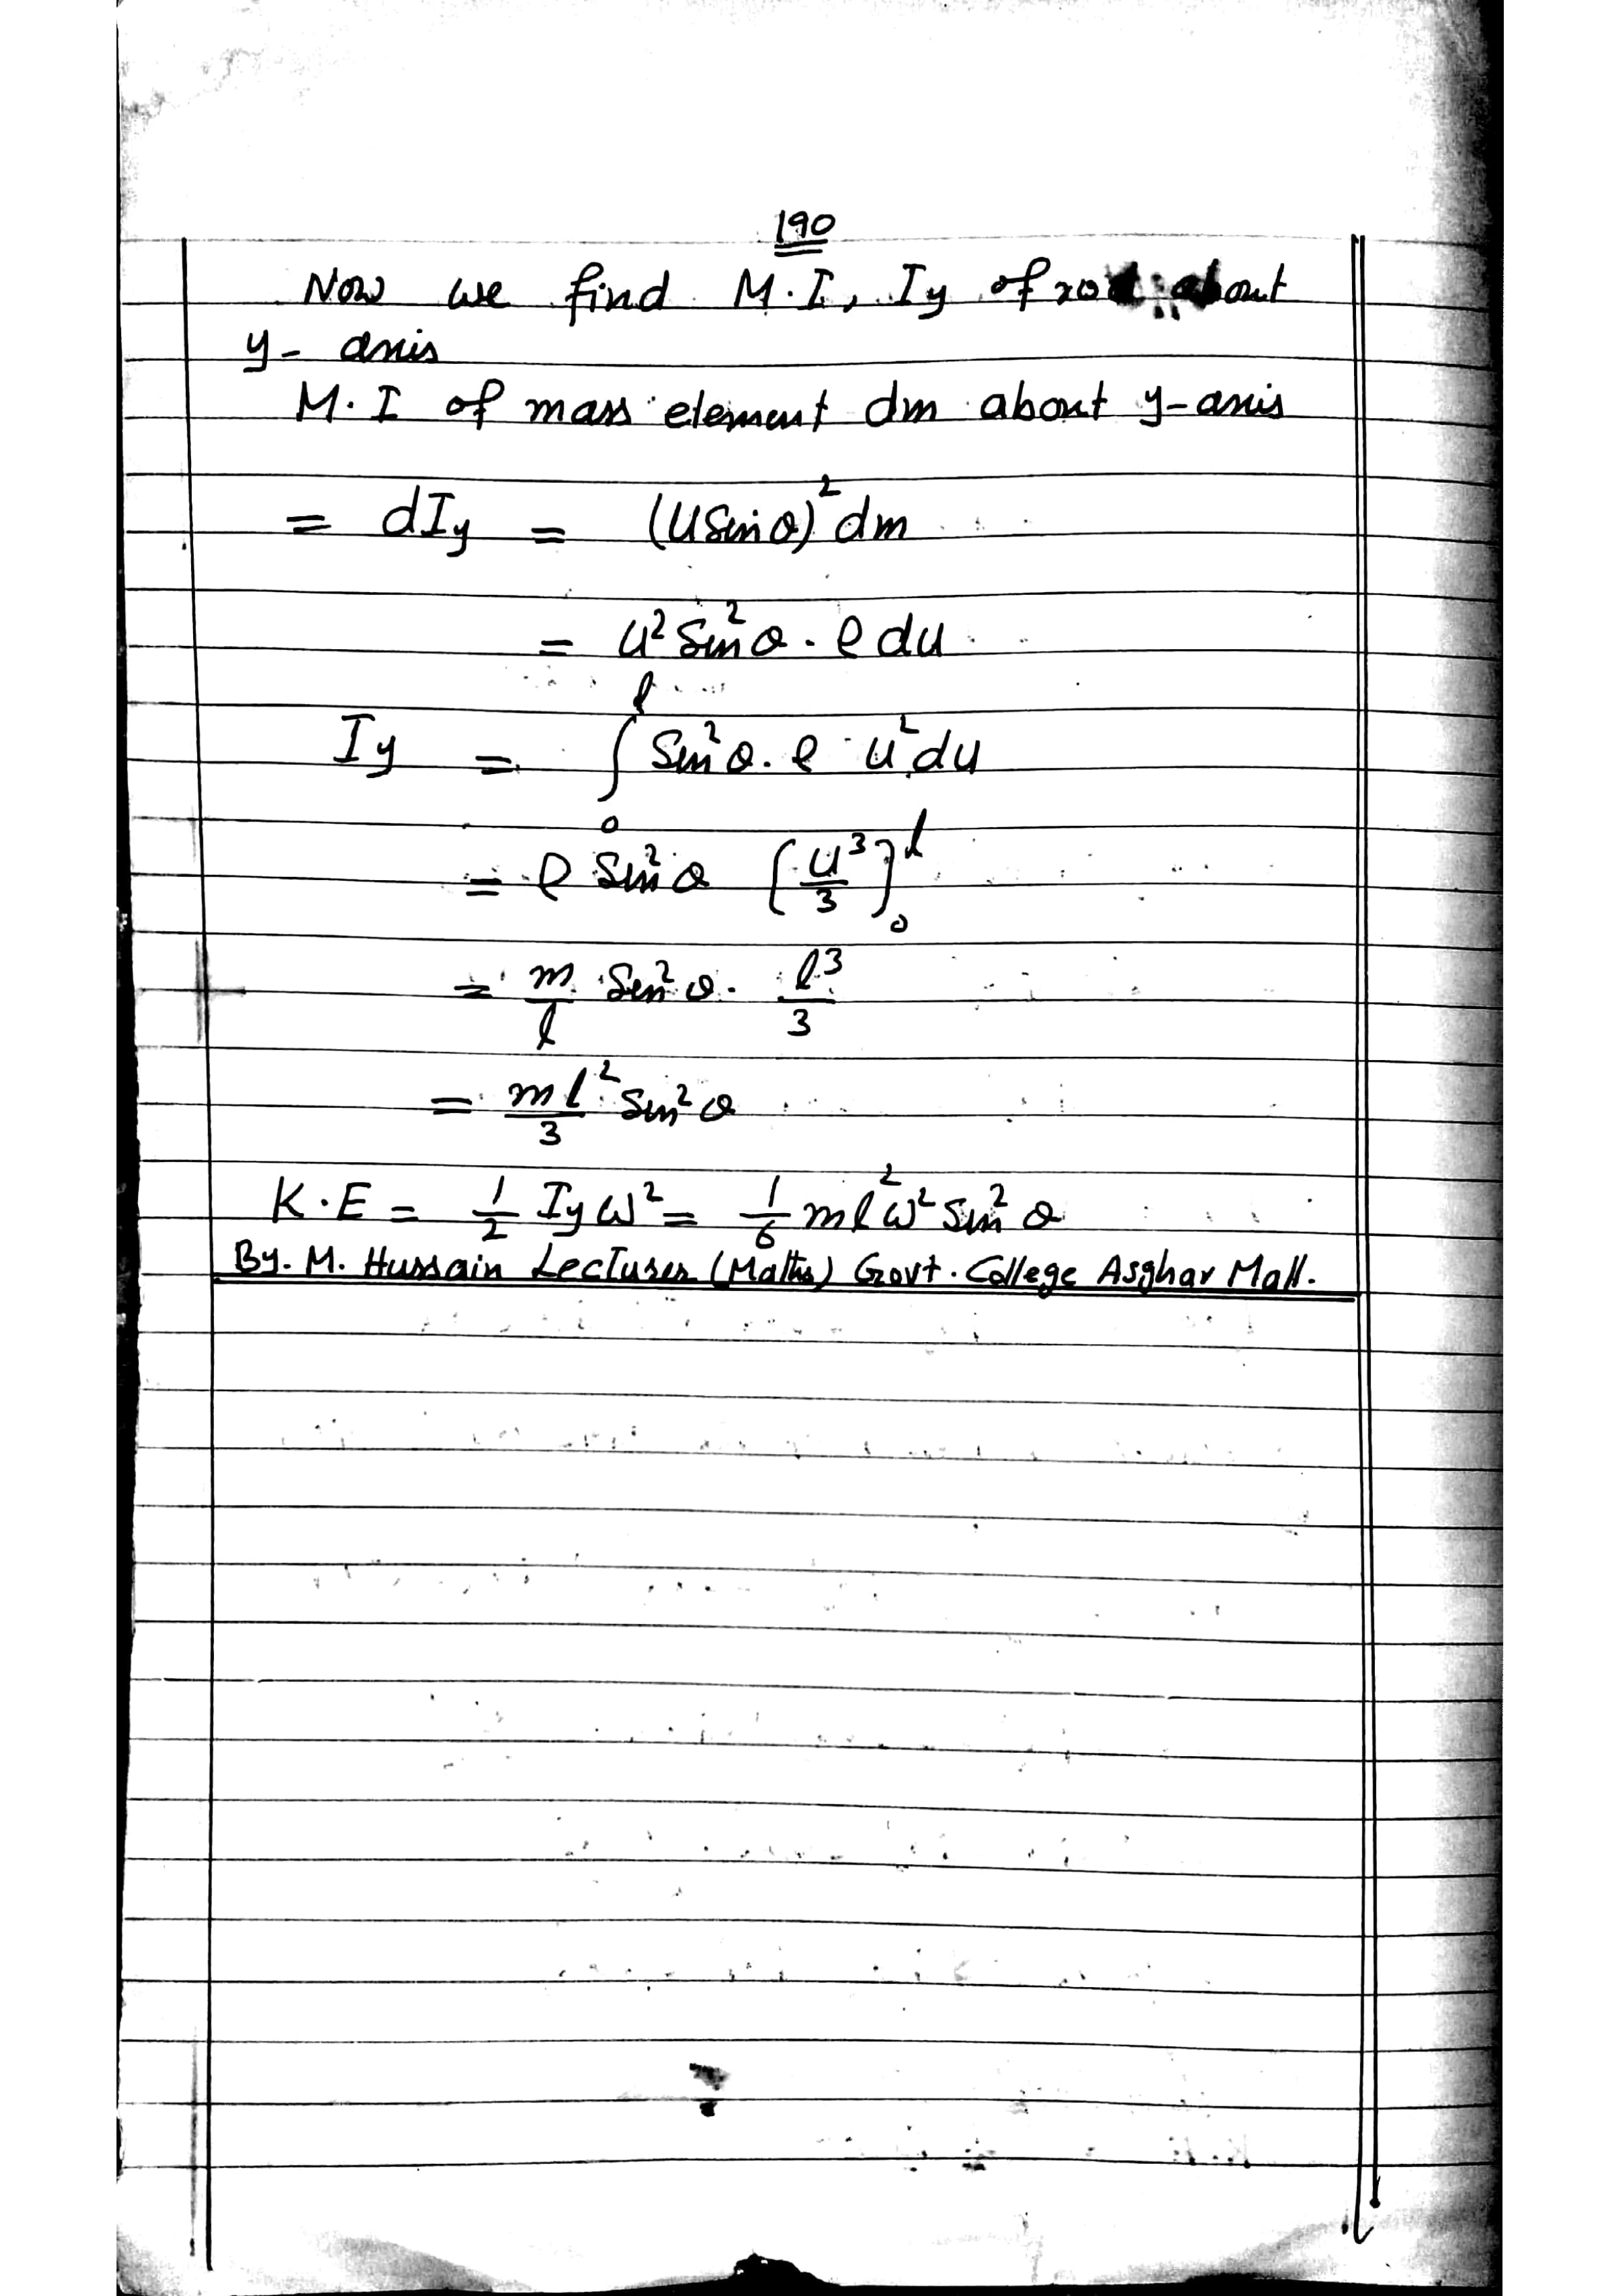 190
Now we find M.I, Iy of rod about
y- axis
M.I of mass element dm about y-axis
= dIy = (u Sin θ)² dm
= u² Sin² θ . ρ du
Iy = ∫₀ˡ Sin² θ . ρ u² du
= ρ Sin² θ [u³/3]₀ˡ
= m/l Sin² θ . l³/3
= ml²/3 Sin² θ
K.E = 1/2 Iy ω² = 1/6 m l² ω² Sin² θ
By. M. Hussain Lecturer (Maths) Govt. College Asghar Mall.